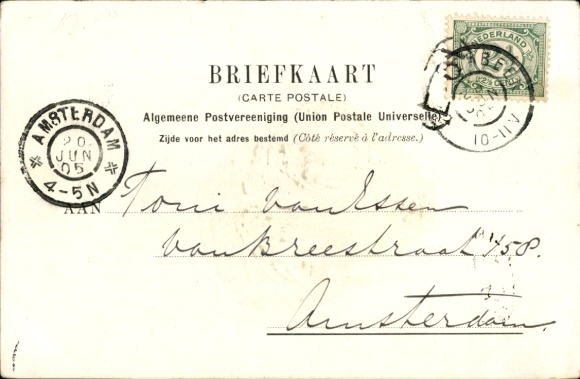 NEDERLAND
BRIEFKAART
(CARTE POSTALE)
Algemeene Postvereeniging (Union Postale Universelle)
Zijde voor het adres bestemd (Côté réservé à l'adresse.)
AMSTERDAM
20
JUN
05
4-5N
10-11V
AAN Toni van Essen
van Breestraat 158.
Amsterdam.